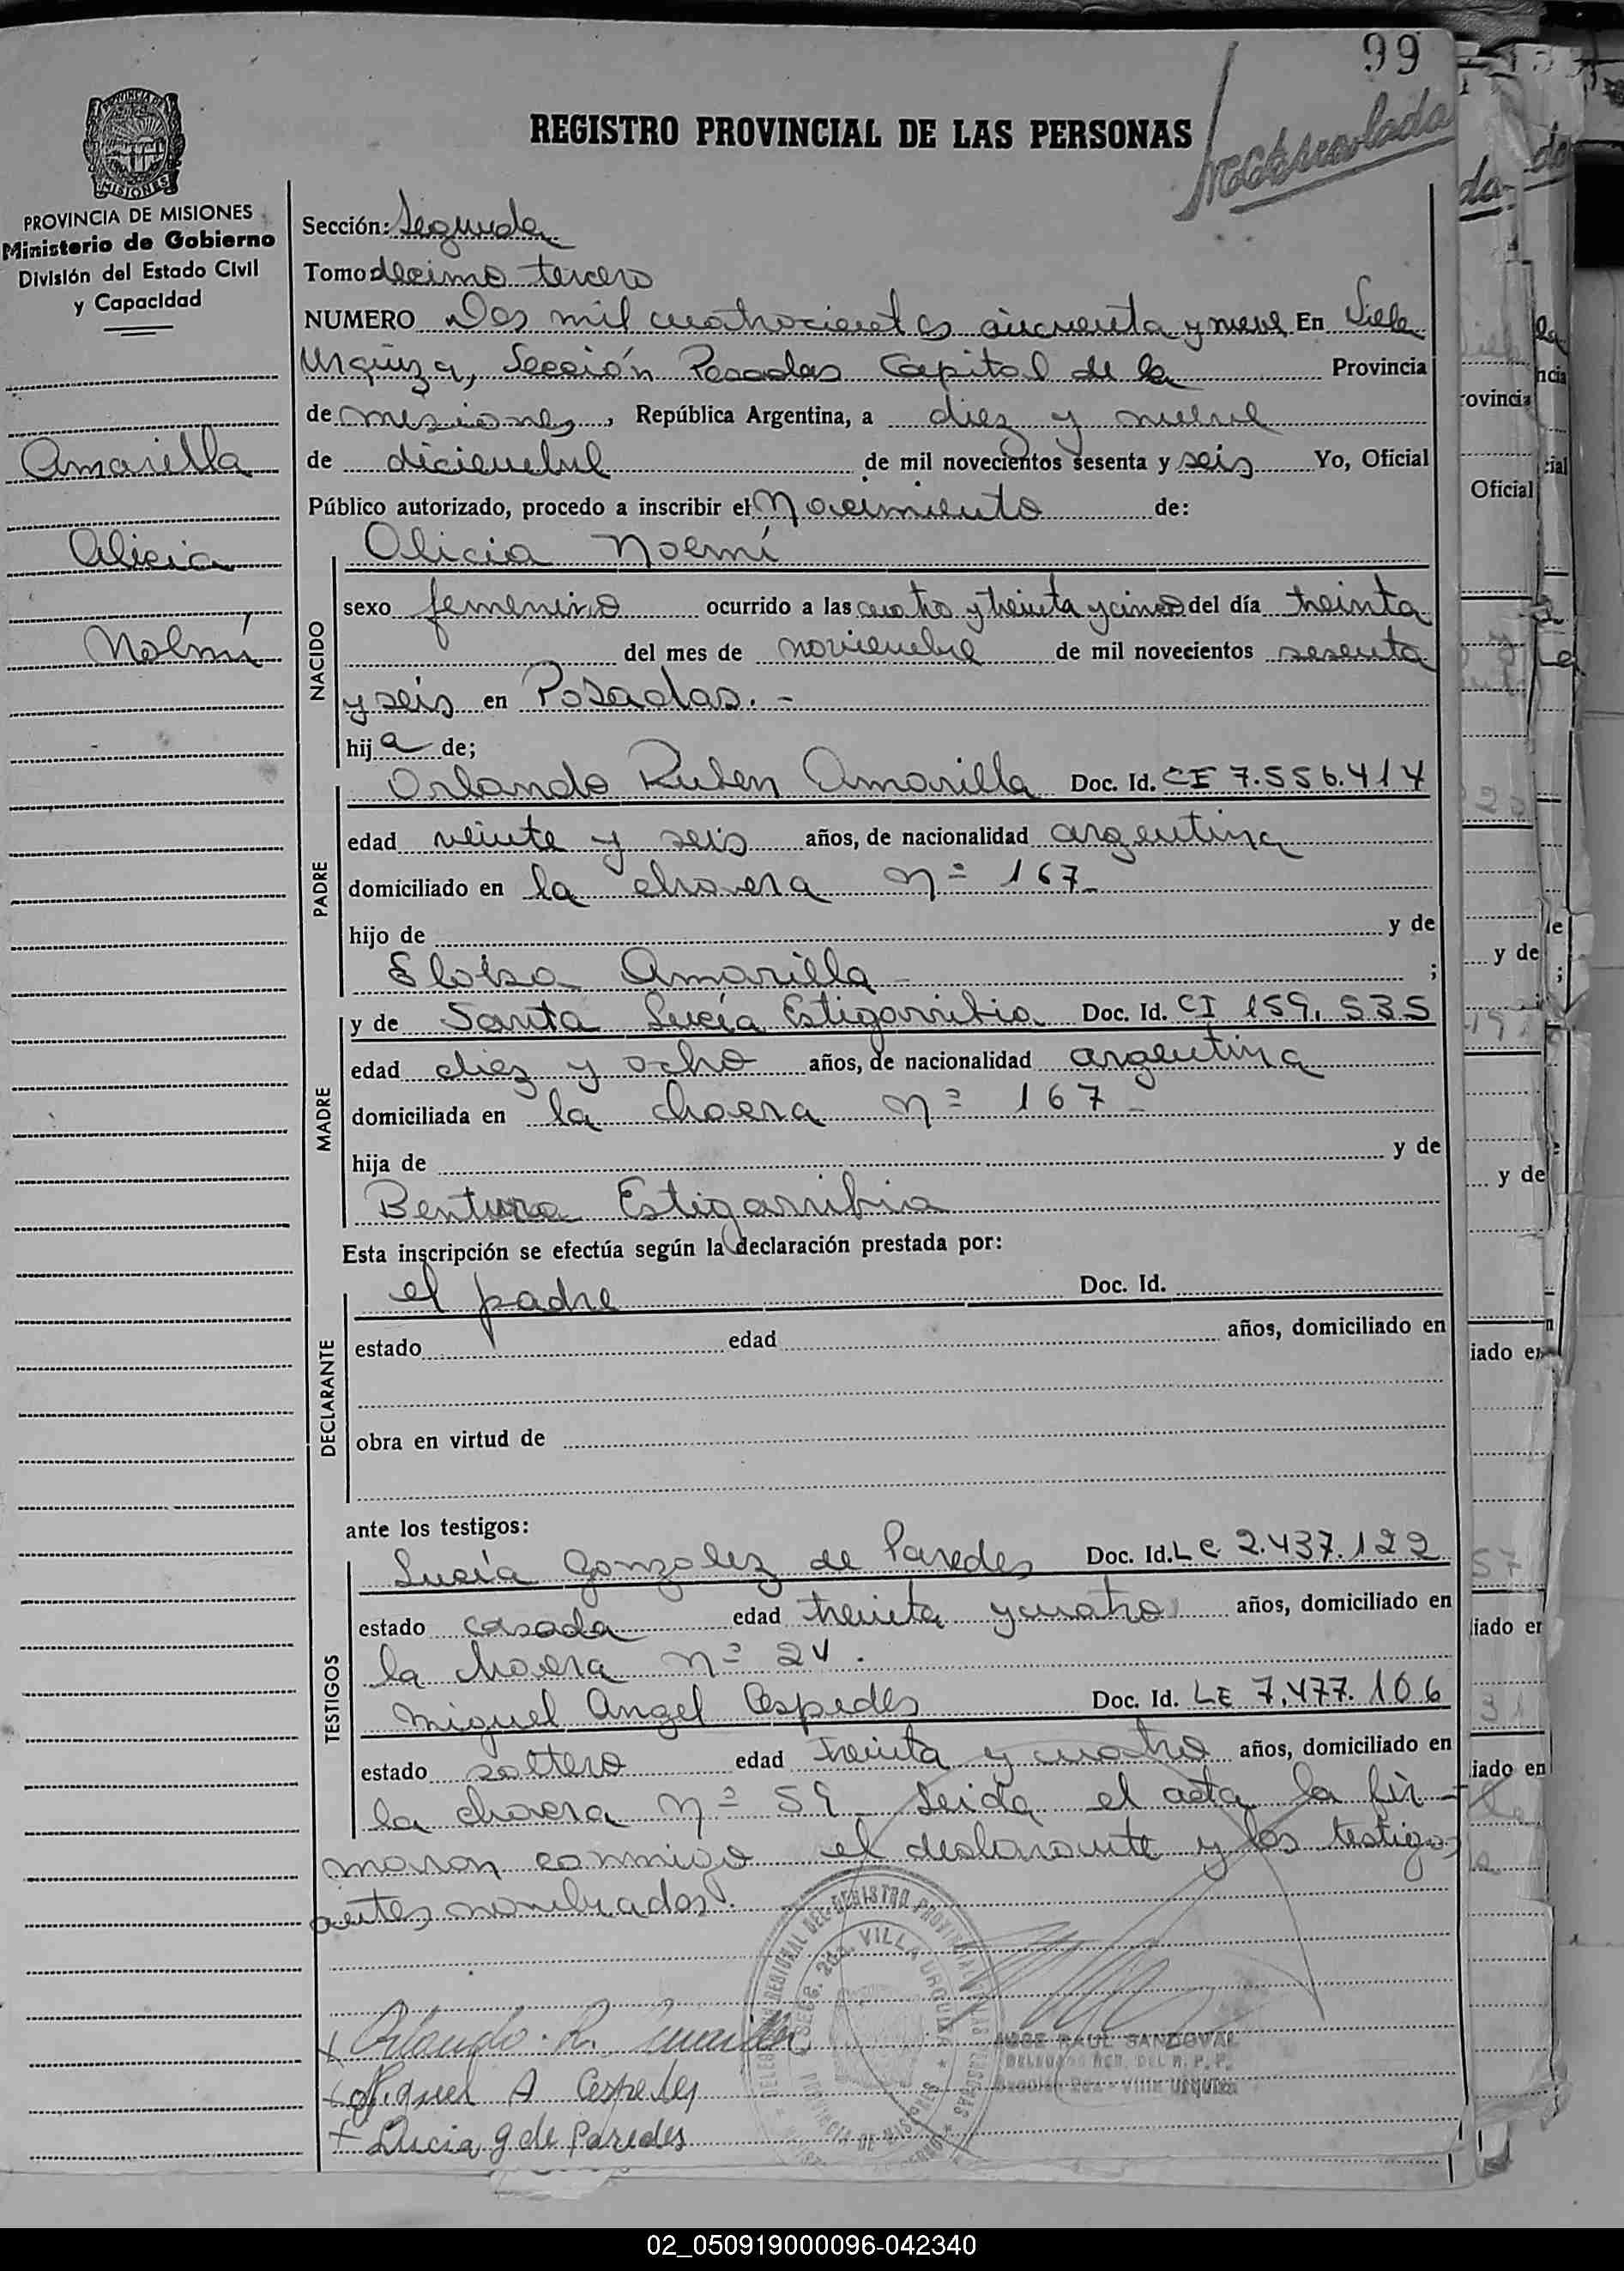 99
REGISTRO PROVINCIAL DE LAS PERSONAS
MISIONES
PROVINCIA DE MISIONES
Ministerio de Gobierno
División del Estado Civil
y Capacidad
Amarilla
Alicia
Noemí
Sección: Segunda
Tomo decimo tercero
NUMERO Dos mil cuatrocientos cincuenta y nueve En Villa
Urquiza, Sección Posadas Capital de la Provincia
de misiones, República Argentina, a diez y nueve
de diciembre de mil novecientos sesenta y seis Yo, Oficial
Público autorizado, procedo a inscribir el Nacimiento de:
Alicia Noemí
NACIDO
sexo femenino ocurrido a las cuatro y treinta y cinco del día treinta
del mes de noviembre de mil novecientos sesenta
y seis en Posadas. -
hija de;
PADRE
Orlando Ruben Amarilla Doc. Id. CI 7.556.414
edad veinte y seis años, de nacionalidad argentina
domiciliado en la chacra nº 167
hijo de y de
Eloisa Amarilla ;
MADRE
y de Santa Lucía Estigarribia Doc. Id. CI 159.535
edad diez y ocho años, de nacionalidad argentina
domiciliada en la chacra nº 167
hija de y de
Bentura Estigarribia
Esta inscripción se efectúa según la declaración prestada por:
DECLARANTE
el padre Doc. Id.
estado edad años, domiciliado en
obra en virtud de
ante los testigos:
TESTIGOS
Lucía Gonzalez de Paredes Doc. Id. LC 2.437.122
estado casada edad treinta y cuatro años, domiciliado en
la chacra nº 24.
Miguel Angel Cespedes Doc. Id. LE 7.477.106
estado soltero edad treinta y cuatro años, domiciliado en
la chacra nº 59 Leida el acta la fir-
maron conmigo el declarante y los testigos
antes nombrados.
Orlando R. Amarilla
Miguel A Cespedes
Lucia g de Paredes
JOSE RAUL SANDOVAL
DELEGADO REG. DEL R. P. P.
Sección 2da - Villa Urquiza
02_050919000096-042340